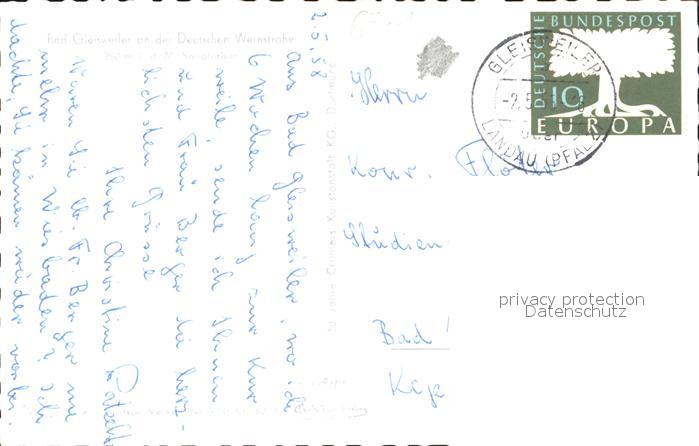 Bad Gleisweiler an der Deutschen Weinstraße
Sanatorium
2.5.58
Aus Bad Gleisweiler, wo ich
6 Wochen lang zur Kur
weile, sende ich Ihnen
und Frau Berger die herz-
lichsten Grüsse
Ihre Christine
Waren Sie u. Fr. Berger nie
mehr in Wiesbaden? Ich
dachte Sie kämen wieder vorbei.
50 Jahre Cramers Kunstanstalt KG, Dortmund
DEUTSCHE
BUNDESPOST
10
EUROPA
GLEISWEILER
LANDAU (PFALZ)
Herrn
Konr.
Studien
Bad
privacy protection
Datenschutz